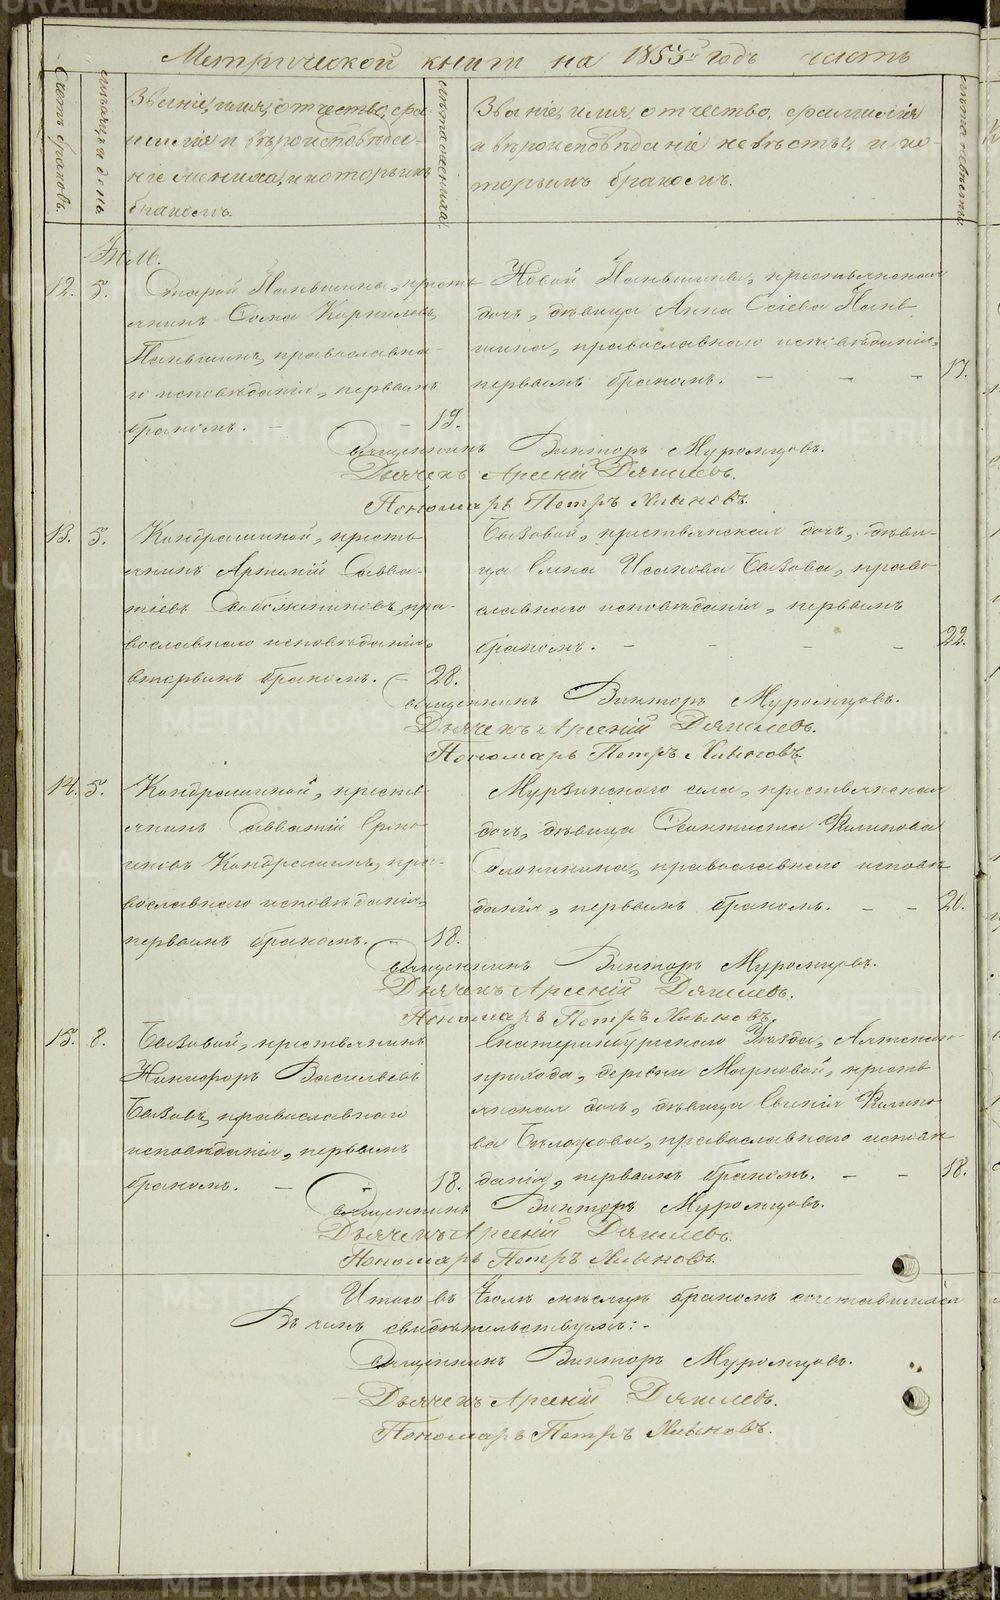 Метрической книги на 1853й годъ часть
Счетъ браковъ.
Мѣсяцъ и день.
Званіе, имя, отчество, фа-
милія и вѣроисповѣда-
ніе жениха, и которымъ
бракомъ.
Лѣта жениха.
Званіе, имя, отчество, фамилія
и вѣроисповѣданіе невѣсты, и ко-
торымъ бракомъ.
Лѣта невѣсты.
Іюль.
12. 5. Старой Паньшина, кресть-
янинъ Сома Корниловъ
Паньшинъ, православна-
го исповѣданія, первымъ
бракомъ. 19.
Новой Паньшина, крестьянская
дочь, дѣвица Анна Паньшина, православнаго исповѣданія,
первымъ бракомъ. 17.
Священникъ Викторъ Муромцовъ.
Дьячекъ Арсеній Дягилевъ.
Пономарь Петръ Хлыновъ.
13. 5. Кондрашиной, кресть-
янинъ Артемій Савва-
тіевъ пра-
вославнаго исповѣданія,
вторымъ бракомъ. 28.
Бызовой, крестьянская дочь, дѣви-
ца Елена Исакова Бызова, право-
славнаго исповѣданія, первымъ
бракомъ. 22.
Священникъ Викторъ Муромцовъ.
Дьячекъ Арсеній Дягилевъ.
Пономарь Петръ Хлыновъ.
14. 5. Кондрашиной, кресть-
янинъ Савватій Ермо-
иновъ Кондрашинъ, пра-
вославнаго исповѣданія,
первымъ бракомъ. 18.
Мурзинскаго села, крестьянская
дочь, дѣвица Феоктиста Филипова
православнаго исповѣ-
данія, первымъ бракомъ. 20.
Священникъ Викторъ Муромцовъ.
Дьячекъ Арсеній Дягилевъ.
Пономарь Петръ Хлыновъ.
15. 8. Бызовой, крестьянинъ
Никифоръ Васильевъ
Бызовъ, православнаго
исповѣданія, первымъ
бракомъ. 18.
Екатеринбургскаго Уѣзда, Аятскаго
прихода, деревни крестьянская дочь, дѣвица Евгенія Филипо-
ва Бѣлоусова, православнаго исповѣ-
данія, первымъ бракомъ. 18.
Священникъ Викторъ Муромцовъ.
Дьячекъ Арсеній Дягилевъ.
Пономарь Петръ Хлыновъ.
Итого въ Іюль мѣсяцѣ бракомъ сочетавшихся
Въ чемъ свидѣтельствуемъ:-
Священникъ Викторъ Муромцовъ.
Дьячекъ Арсеній Дягилевъ.
Пономарь Петръ Хлыновъ.
METRIKI.GASO-URAL.RU